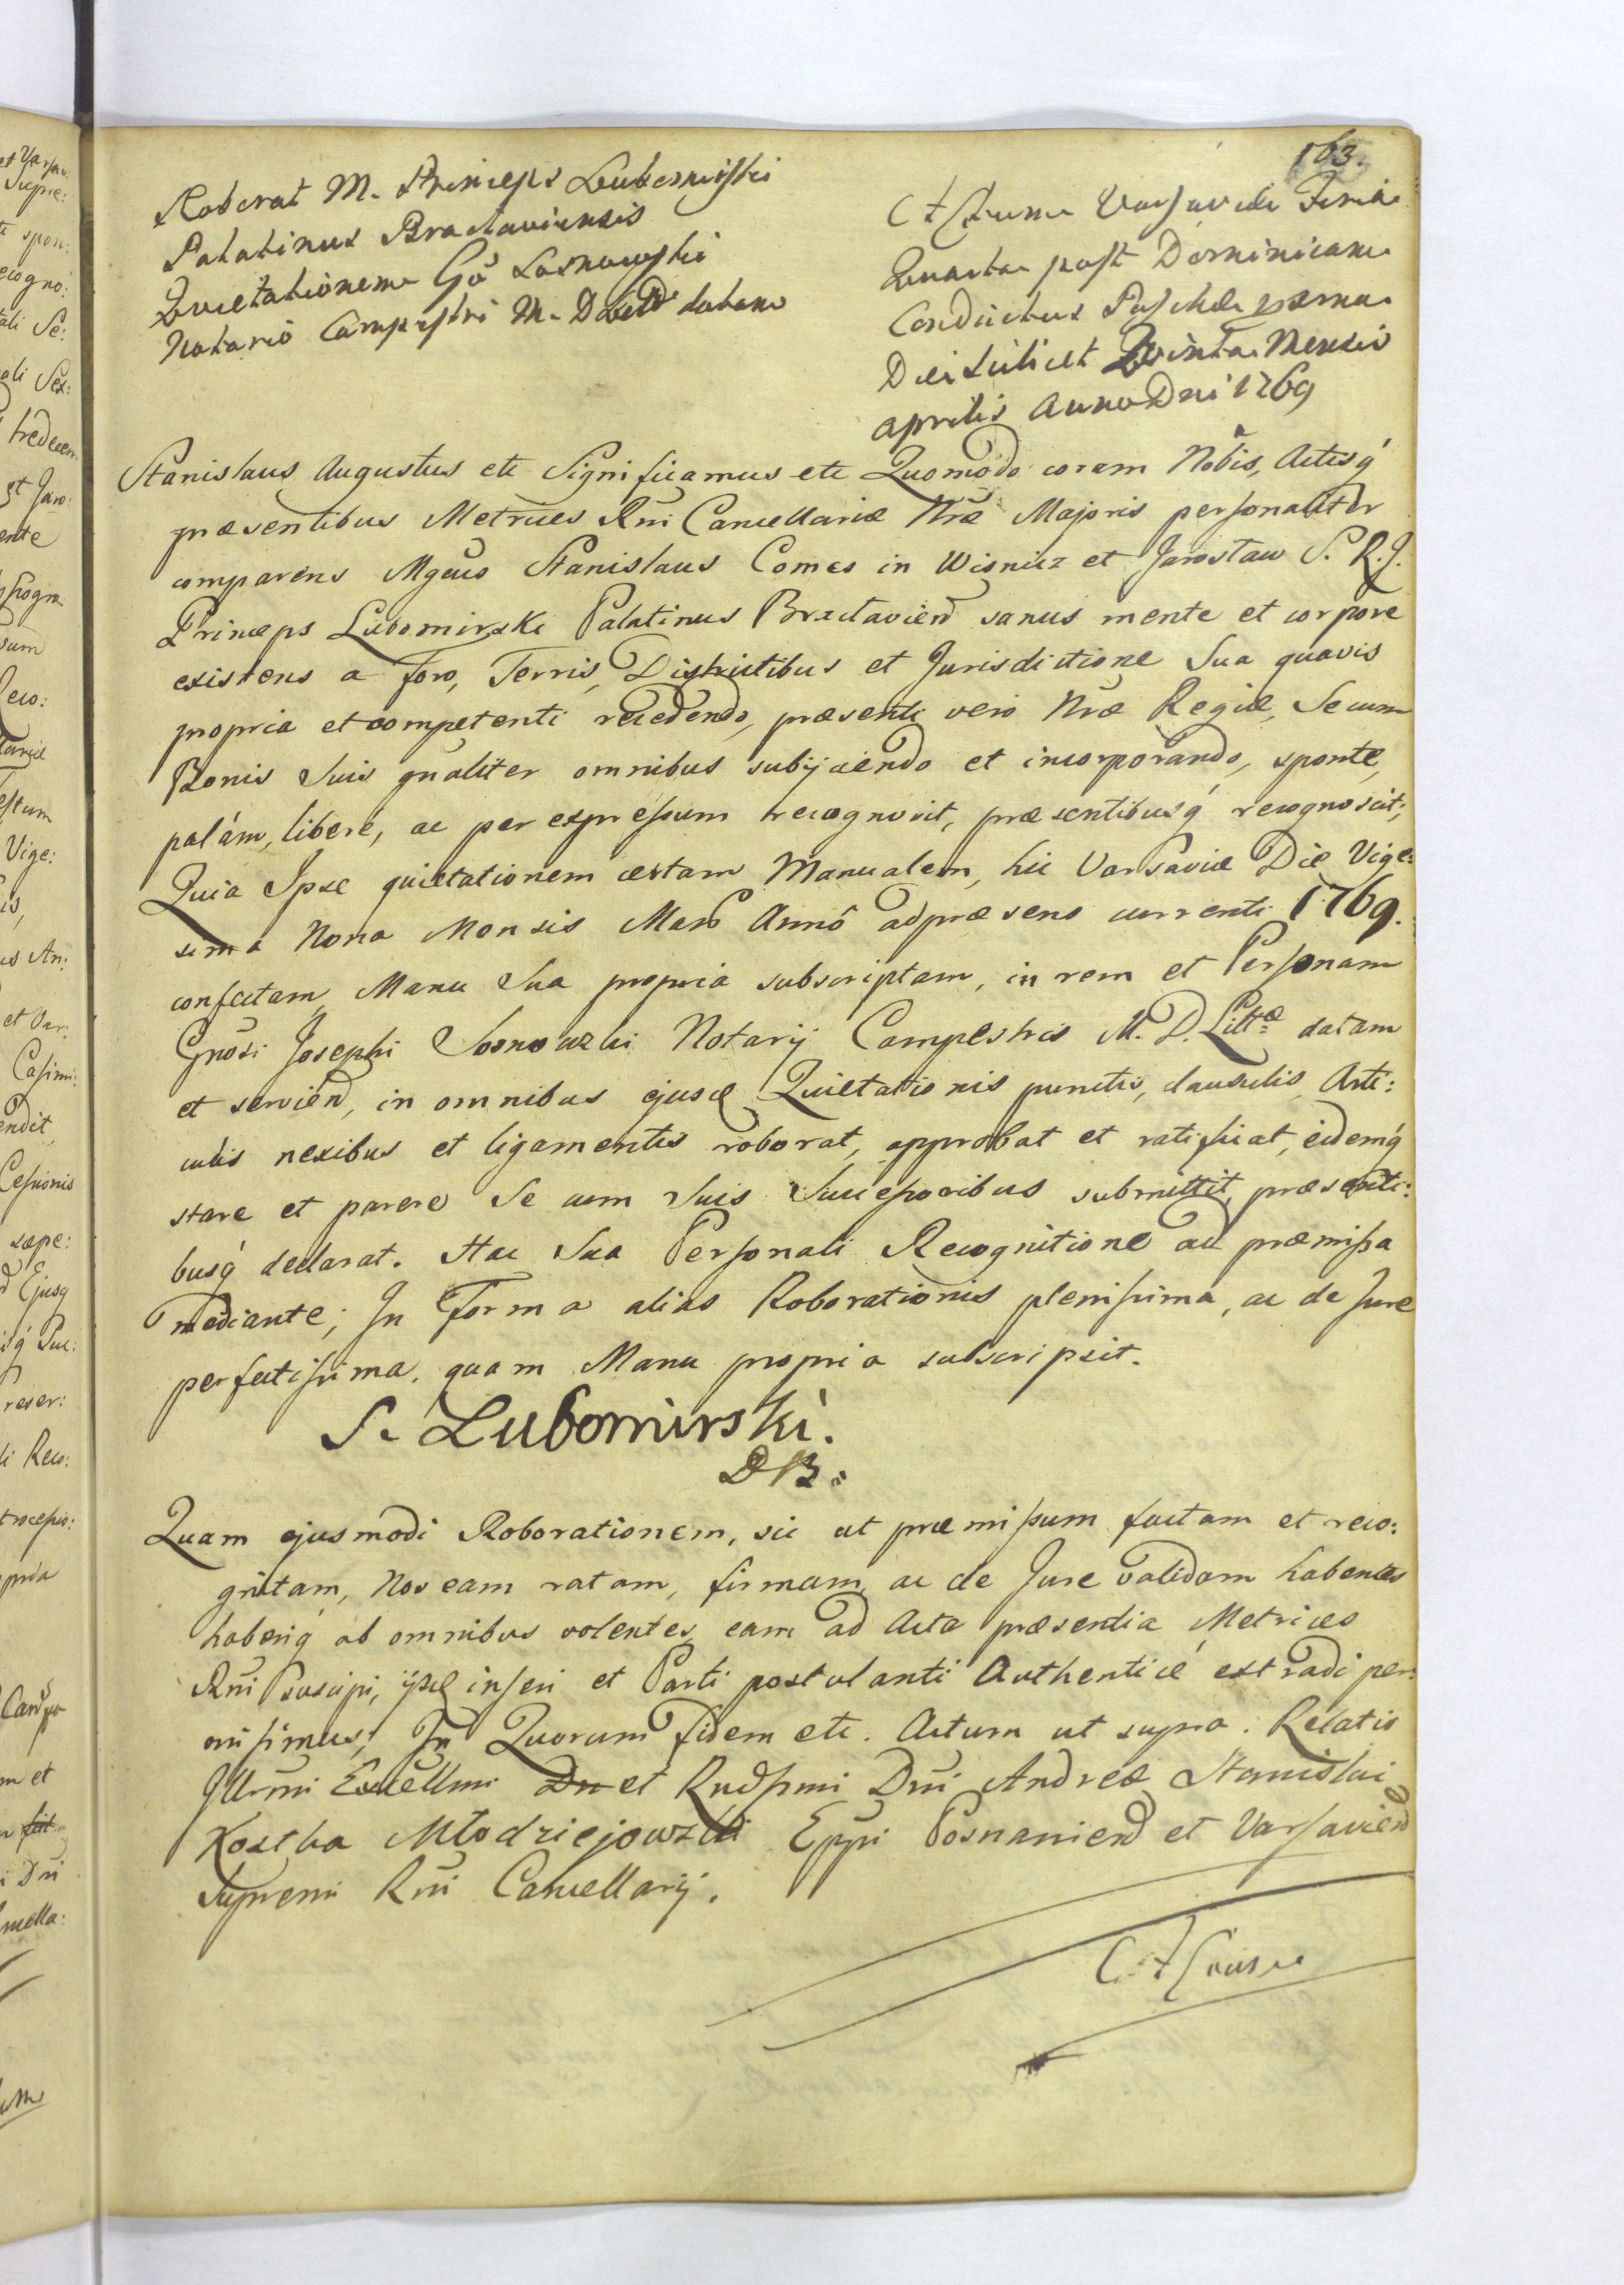 163.
Roborat M. Princeps Lubomirski
Palatinus Braclaviensis
Quietationem Gō Sosnowski
Notario Campestri M. D. datam
Actum Varsaviæ Feria
Quarta post Dominicam
Conductus Paschæ
Die scilicet Quinta Mensis
aprilis Anno Dni 1769
Stanislaus Augustus etc Significamus etc Quomodo coram Nobis, Actisq́
præsentibus Metrices Rñi Cancellariæ Nræ Majoris personaliter
comparens Mgcus Stanislaus Comes in Wisnicz et Jarosław S. R. J.
Princeps Lubomirski Palatinus Braclavien̄ sanus mente et corpore
existens a foro, Terris, Districtibus et Jurisdictione Sua quavis
propria et competenti recedendo, præsenti vero Nræ Regiæ, Se cum
Bonis Suis gnāliter omnibus subijciendo et incorporando, sponte,
palám, liberé, ac per expressum recognovit, præsentibusq́ recognoscit;
Quia Ipse quietationem certam Manualem, hic Varsaviæ Die Vige:
sima Nona Mensis Martÿ Annô adpræsens currenti 1769.
confectam, Manu Sua propria subscriptam, in rem et Personam
Gnosi Josephi Sosnowski Notarÿ Campestris M. D. Litt͞æ datam
et servien̄, in omnibus ejusd̄ Quietationis punctis, clausulis, Arti:
culis nexibus et ligamentis roborat, approbat et ratificat, eidemq́
stare et parere Se cum Suis Successoribus submittit, præsenti:
busq́ declarat. Hac Sua Personali Recognitione ad præmissa
mediante; In Forma alias Roborationis plenissima, ac de Jure
perfectissima. quam Manu propria subscripsit.
S. Lubomirski.
Quam ejusmodi Roborationem, sic ut præmissum factam et reco:
gnitam, Nos eam ratam, firmam, ac de Jure validam habentes
haberiq́ ab omnibus volentes, eam ad Acta præsentia Metrices
Rñi suscipi, ijsd̄ inseri et Parti postulanti Authenticé extradi per:
misimus, In Quorum fidem etc. Actum ut supra. Relatio
Illrmi Excellmi Dn et Rndssmi Dñi Andreæ Stanislai
Kostka Młodziejowski Eppi Posnanien̄ et Varsavien̄
Supremi Rñi Cancellarij.